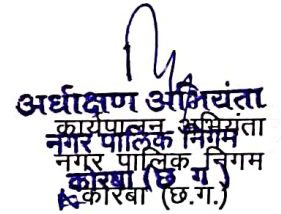 अधीक्षण अभियंता
कार्यपालन अभियंता
नगर पालिक निगम
नगर पालिक निगम
कोरबा (छ ग )
कोरबा (छ.ग.)